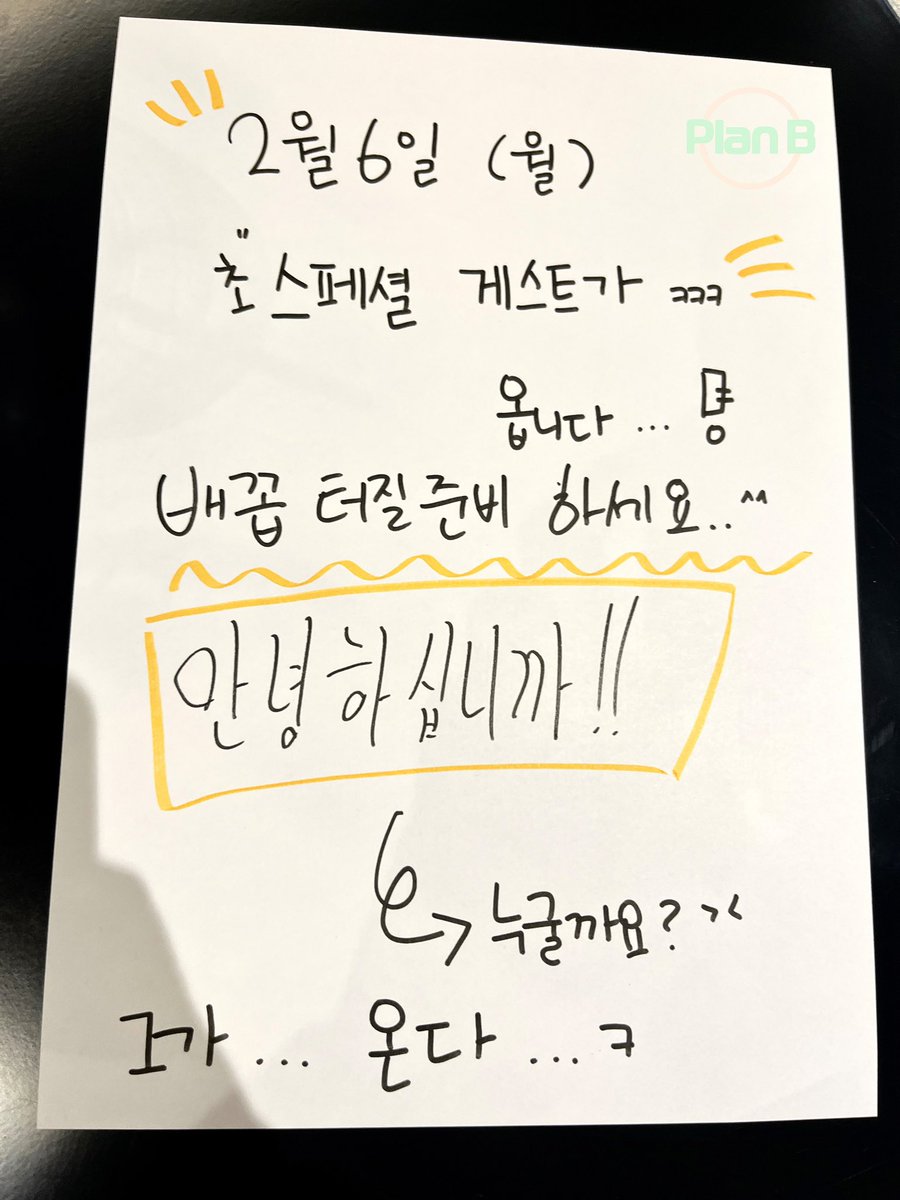 Plan B
2월 6일 (월)
초" 스페셜 게스트가 ㅋㅋㅋ
옵니다 ...
배꼽 터질준비 하세요..^^
안녕하십니까!!
누굴까요? ><
그가 ... 온다 ... ㅋ